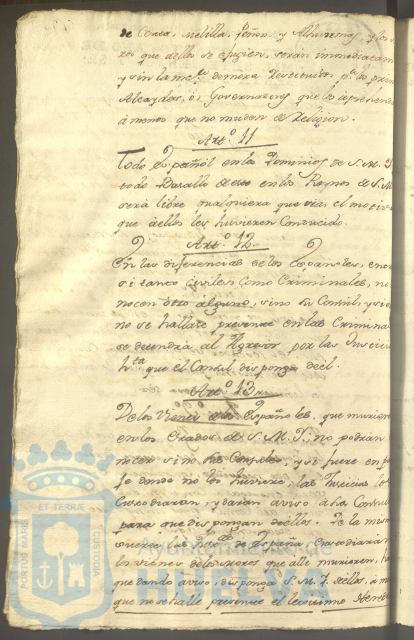 de Ceuta, Melilla, Peñon y Alhucemas, y los
ros que aellos se fugien, serán immediatam
y sin la mor demora p los prim
Alcaydes, ó Governadores que los aprehenda
á menos que no muden de Religion.
Art.º 11
Todo Español en los Dominios de S. M. I.
todo Vasallo de este en los Reynos de S. M.
será libre qualquiera que sea el motivo
que á ellos les huvieren Conducido.
Art.º 12
En las diferencias de los Españoles, entre
sí tanto Civiles como Criminales, no
nocerá otro alguno, sino su Consul, y si
no se hallare presente en las Criminal
se detendrá al Agresor por las Justicia
hta que el Consul disponga de él.
Art.º 13
De los Vienes de los Españoles, que murieren
en los Estados de S. M. I., no podrán
nocer sino los Consules, y si fuere en pa
je donde no los huviere, las Justicias los
Custodiaran, y daran aviso á la Consul
para que dispongan de ellos. De la mis
manera las de España, Custodiaran
los vienes de los Moros que alli murieren,
que dando aviso, disponga S. M. I. de ellos, á m
que no se halle presente el legitimo Hered
PORTUS MARIS ET TERRÆ CUSTODIA
Ayuntamiento de
HUELVA